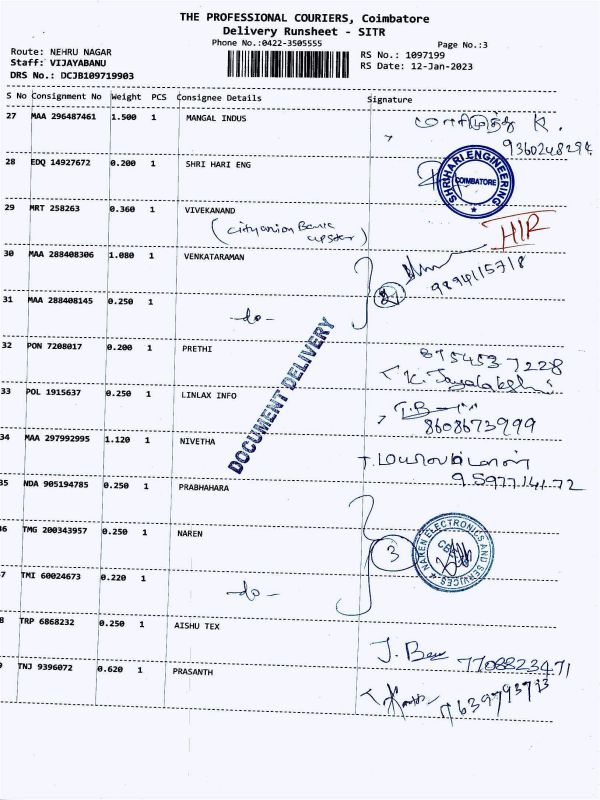 THE PROFESSIONAL COURIERS, Coimbatore
Delivery Runsheet - SITR
Phone No.:0422-3505555
Page No.:3
Route: NEHRU NAGAR
Staff: VIJAYABANU
DRS No.: DCJB109719903
RS No.: 1097199
RS Date: 12-Jan-2023
S No Consignment No Weight PCS Consignee Details Signature
27 MAA 296487461 1.500 1 MANGAL INDUS
மாரிமுத்து K.
28 EDQ 14927672 0.200 1 SHRI HARI ENG
SHRI HARI ENGINEERING
COIMBATORE
29 MRT 258263 0.360 1 VIVEKANAND
HIR
30 MAA 288408306 1.080 1 VENKATARAMAN
9894115718
31 MAA 288408145 0.250 1
-do-
DOCUMENT DELIVERY
32 PON 7208017 0.200 1 PRETHI
8754537228
K. Jayalakshmi
33 POL 1915637 0.250 1 LINLAX INFO
8608673999
34 MAA 297992995 1.120 1 NIVETHA
9597714172
35 NDA 905194785 0.250 1 PRABHAHARA
6 TMG 200343957 0.250 1 NAREN
3
NAREN ELECTRONICS AND SERVICES
CBE
7 TMI 60024673 0.220 1
-do-
8 TRP 6868232 0.250 1 AISHU TEX
7708823471
9 TNJ 9396072 0.620 1 PRASANTH